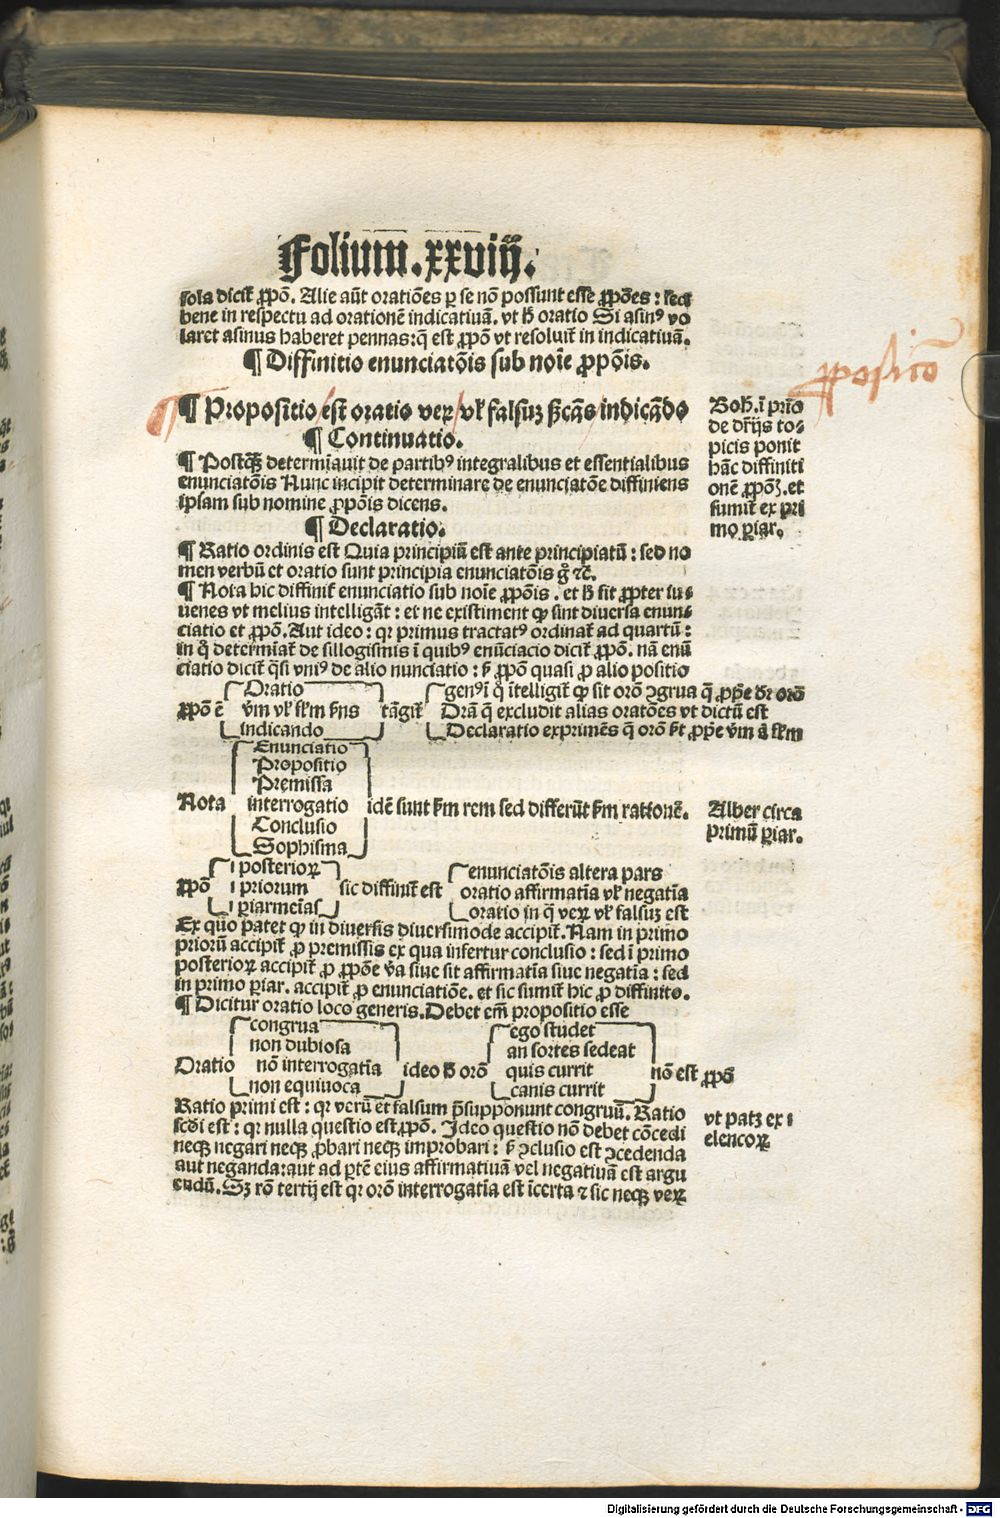 Folium. xxviij.
sola dicit᷑ ꝓpõ. Alie aũt oratiões ꝑ se nõ possunt esse ꝓpões : secꝫ
bene in respectu ad orationẽ indicatiuã. vt hͦ oratio Si asinꝰ vo
laret asinus haberet pennas: q̃ est ꝓpõ vt resoluit᷑ in indicatiuã.
¶ Diffinitio enunciatõis sub noĩe ꝓpõis.
ꝓposicio̅
¶ Propositio est oratio veꝝ vl̕ falsuꝫ sĩ̃cãs indicãdo
Boh. ĩ prĩo
de dr̃ijs to⸗
picis ponit
hãc diffiniti
onẽ ꝓpõꝫ. et
sumit᷑ ex pri
mo ꝑiar.
¶ Continuatio.
¶ Postꝙ̃ determĩauit de partibꝰ integralibus et essentialibus
enunciatõis Nunc incipit determinare de enunciatõe diffiniens
ipsam sub nomine ꝓpõis dicens.
¶ Declaratio.
¶ Ratio ordinis est Quia principiũ est ante principiatũ : sed no
men verbũ et oratio sunt principia enunciatõis g̊ ⁊c̃.
¶ Nota hic diffinit᷑ enunciatio sub noĩe ꝓpõis . et hͦ fit ꝓpter iu⸗
uenes vt melius intelligãt : et ne existiment ꝙ sint diuersa enun⸗
ciatio et ꝓpõ. Aut ideo : qꝛ primus tractatꝰ ordinat᷑ ad quartũ :
in q̊ determĩat᷑ de sillogismis ĩ quibꝰ enũciacio dicit᷑ ꝓpõ. nã enũ
ciatio dicit᷑ q̃si vniꝰ de alio nunciatio : sͨ ꝓpõ quasi ꝓ alio positio
ꝓpõ ẽ
Oratio
v̓m vl̕ fl̕m sĩ̃ns
indicando
tãgit᷑
genꝰ ĩ q̊ ĩtelligit᷑ ꝙ sit orõ ↄgrua q̃ ꝓpͥe dr̃ orõ
Drã̃ q̃ excludit alias oratões vt dictũ est
Declaratio exprimẽs q̃ orõ sit ꝓpͥe v̓m a fl̕m
Nota
Enunciatio
Propositio
Premissa
interrogatio
Conclusio
Sophisma
idẽ sunt sm̃ rem sed differũt sm̃ rationẽ.
Alber circa
primũ ꝑiar.
ꝓpõ
i posterioꝝ
i priorum
i ꝑiarmeĩas
sic diffinit᷑ est
enunciatõis altera pars
oratio affirmatĩa vl̕ negatĩa
oratio in q̃ veꝝ vl̕ falsuꝫ est
Ex quo patet ꝙ in diuersis diuersimode accipit᷑. Nam in primo
priorũ accipit᷑ ꝓ premissis ex qua infertur conclusio : sed ĩ primo
posterioꝝ accipit᷑ ꝓ ꝓpõe v̓a siue sit affirmatĩa siue negatĩa : sed
in primo ꝑiar. accipit᷑ ꝓ enunciatiõe. et sic sumit᷑ hic ꝓ diffinito.
¶ Dicitur oratio loco generis. Debet em̃ propositio esse
Oratio
congrua
non dubiosa
nõ interrogatĩa
non equiuoca
ideo hͦ orõ
ego studet
an sortes sedeat
quis currit
canis currit
nõ est ꝓpõ
Ratio primi est : qꝛ verũ et falsum p̃supponunt congruũ. Ratio
scďi est : qꝛ nulla questio est ꝓpõ. Ideo questio nõ debet cõcedi
neqꝫ negari neqꝫ ꝓbari neqꝫ improbari : sͨ ↄclusio est ↄcedenda
aut neganda: aut ad ꝑtẽ eius affirmatiuã vel negatiuã est argu
endũ. Sꝫ rõ tertij est qꝛ orõ interrogatĩa est ĩcerta ⁊ sic neqꝫ veꝝ
vt patꝫ ex i
elencoꝝ
Digitalisierung gefördert durch die Deutsche Forschungsgemeinschaft - DFG